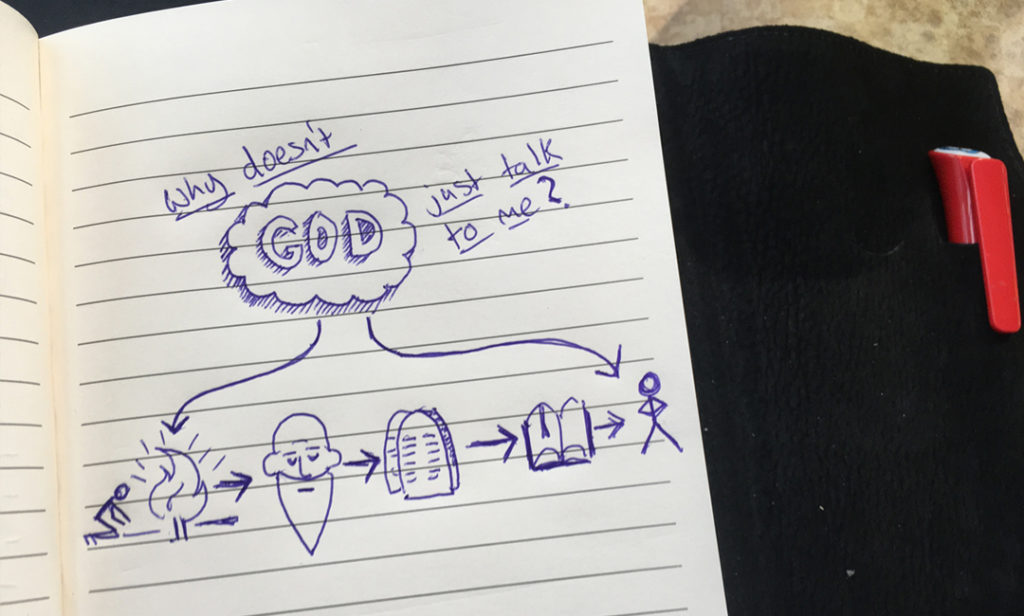 why doesn't
GOD
just talk
to me?